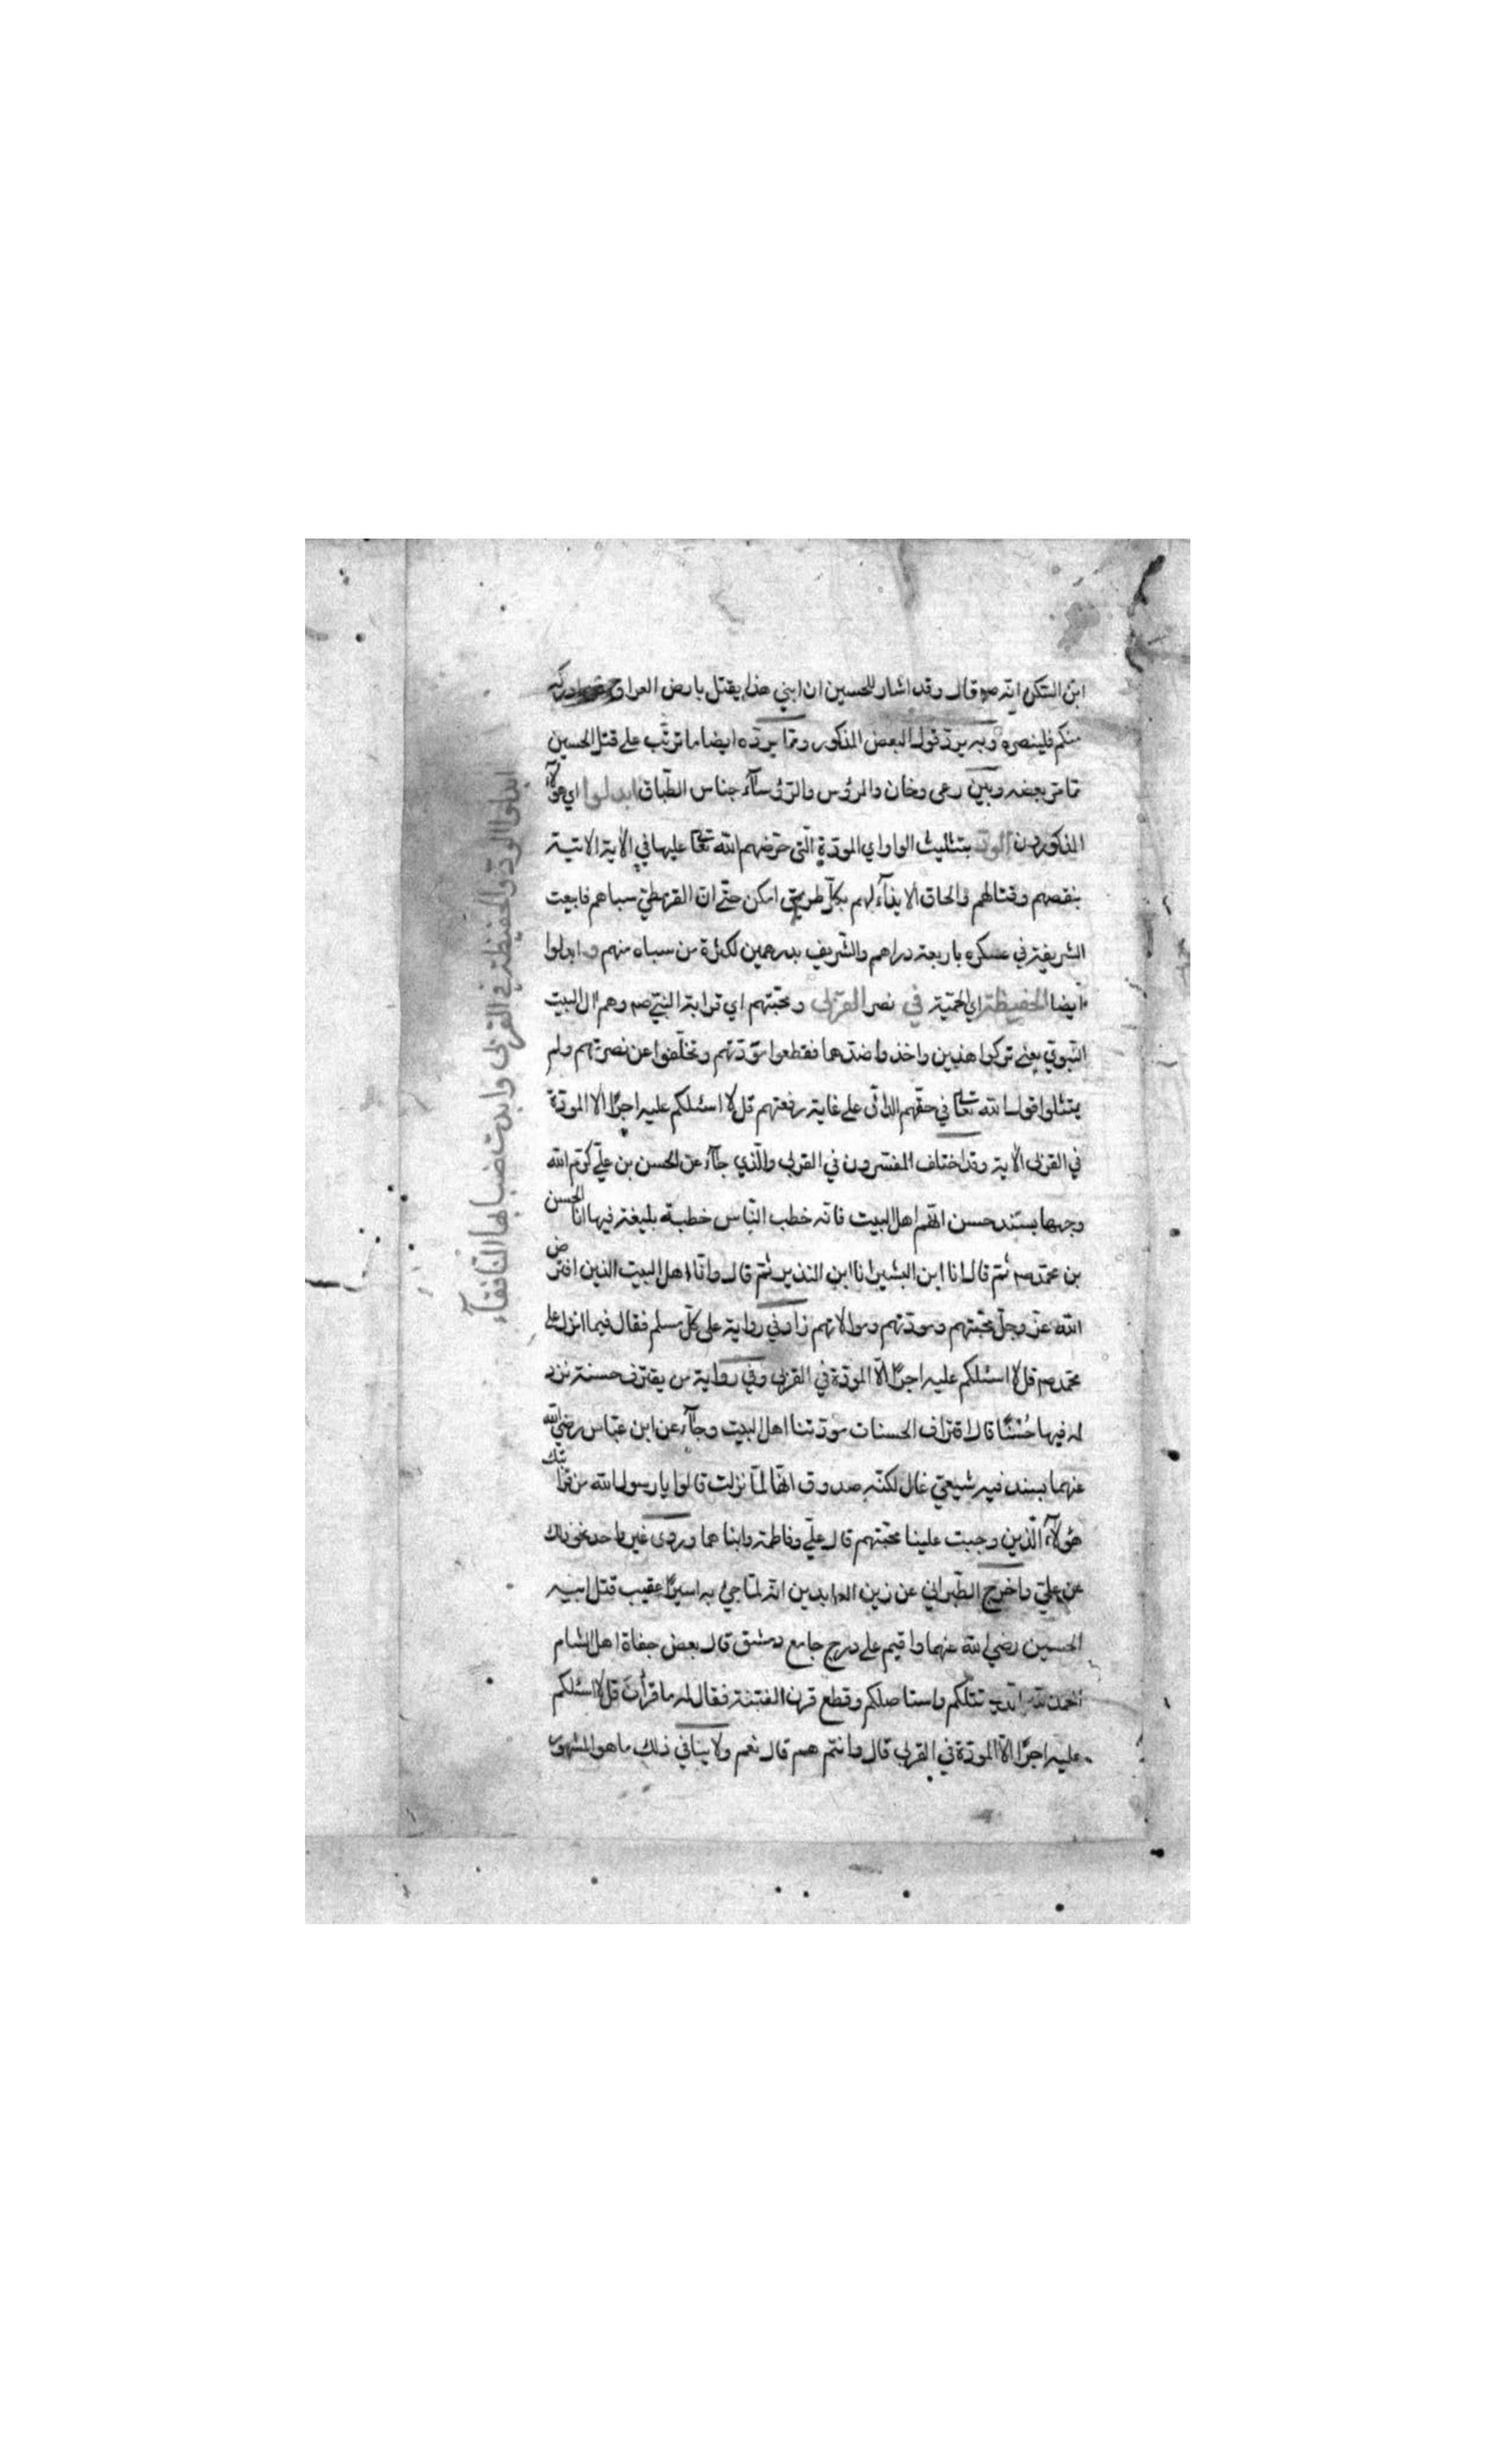 ابن السكن انه صم قال وقد اشار للحسين ان ابني هذا يقتل بارض العراق ادركه
منكم فلينصره وبه يرد قول البعض المذكور ومما يرده ايضا ما ترتب على قتل الحسين
مما مر بعضه وبين رعى وخان والمرؤس والرؤسآء جناس الطباق ابدلوا اي هؤلآء
المذكورون الود بتثليث الواو اي المودة التي حرضهم الله تعا عليها في الاية الاتية
بنقصهم وقتالهم والحاق الايذآء لهم بكل طريق امكن حتى ان القرمطي سباهم فابيعت
الشريفة في عسكره باربعة دراهم والشريف بدرهمين لكثرة من سباه منهم و ابدلوا
ايضا الحفيظة اي الحمية في نصر القربى ومحبتهم اي قرابة النبي صم وهم ال البيت
النبوي يعني تركوا هذين واخذوا ضدها فقطعوا مودتهم وتخلفوا عن نصرتهم ولم
يمتثلوا قول الله تعا في حقهم الدال على غاية رفعتهم قل لا اسئلكم عليه اجرًا الا المودة
في القربى الاية وقد اختلف المفسرون في القربى والذي جآء عن الحسن بن علي كرم الله
وجهها بسند حسن انهم اهل البيت فانه خطب الناس خطبة بليغة فيها انا الحسن
بن محمد صم ثم قال انا ابن البشير انا ابن النذير ثم قال وانا اهل البيت الذين افترض
الله عز وجل محبتهم ومودتهم وموالاتهم زاد في رواية على كل مسلم فقال فيما انزل على
محمد صم قل لا اسئلكم عليه اجرًا الا المودة في القربى وفي رواية من يقترف حسنة نزد
له فيها حُسْنًا قال اقتراف الحسنات مودتنا اهل البيت وجآء عن ابن عباس رضي الله
عنهما بسند فيه شيعي غال لكنه صدوق انها لما نزلت قالوا يا رسول الله من قرابتك
هؤلآء الذين وجبت علينا محبتهم قال علي وفاطمة وابناهما وروى غير واحد نحو ذلك
عن علي واخرج الطبراني عن زين العابدين انه لما جيء به اسيرًا عقيب قتل ابيه
الحسين رضي الله عنهما واقيم على درج جامع دمشق قال بعض جفاة اهل الشام
الحمد لله الذي قتلكم واستاصلكم وقطع قرن الفتنة فقال له ما قرأت قل لا اسئلكم
عليه اجرًا الا المودة في القربى قال وانتم هم قال نعم ولا ينافي ذلك ما هو المشهور
ابدلوا الود والحفيظة في القربى وابدت ضبابها النافقآء